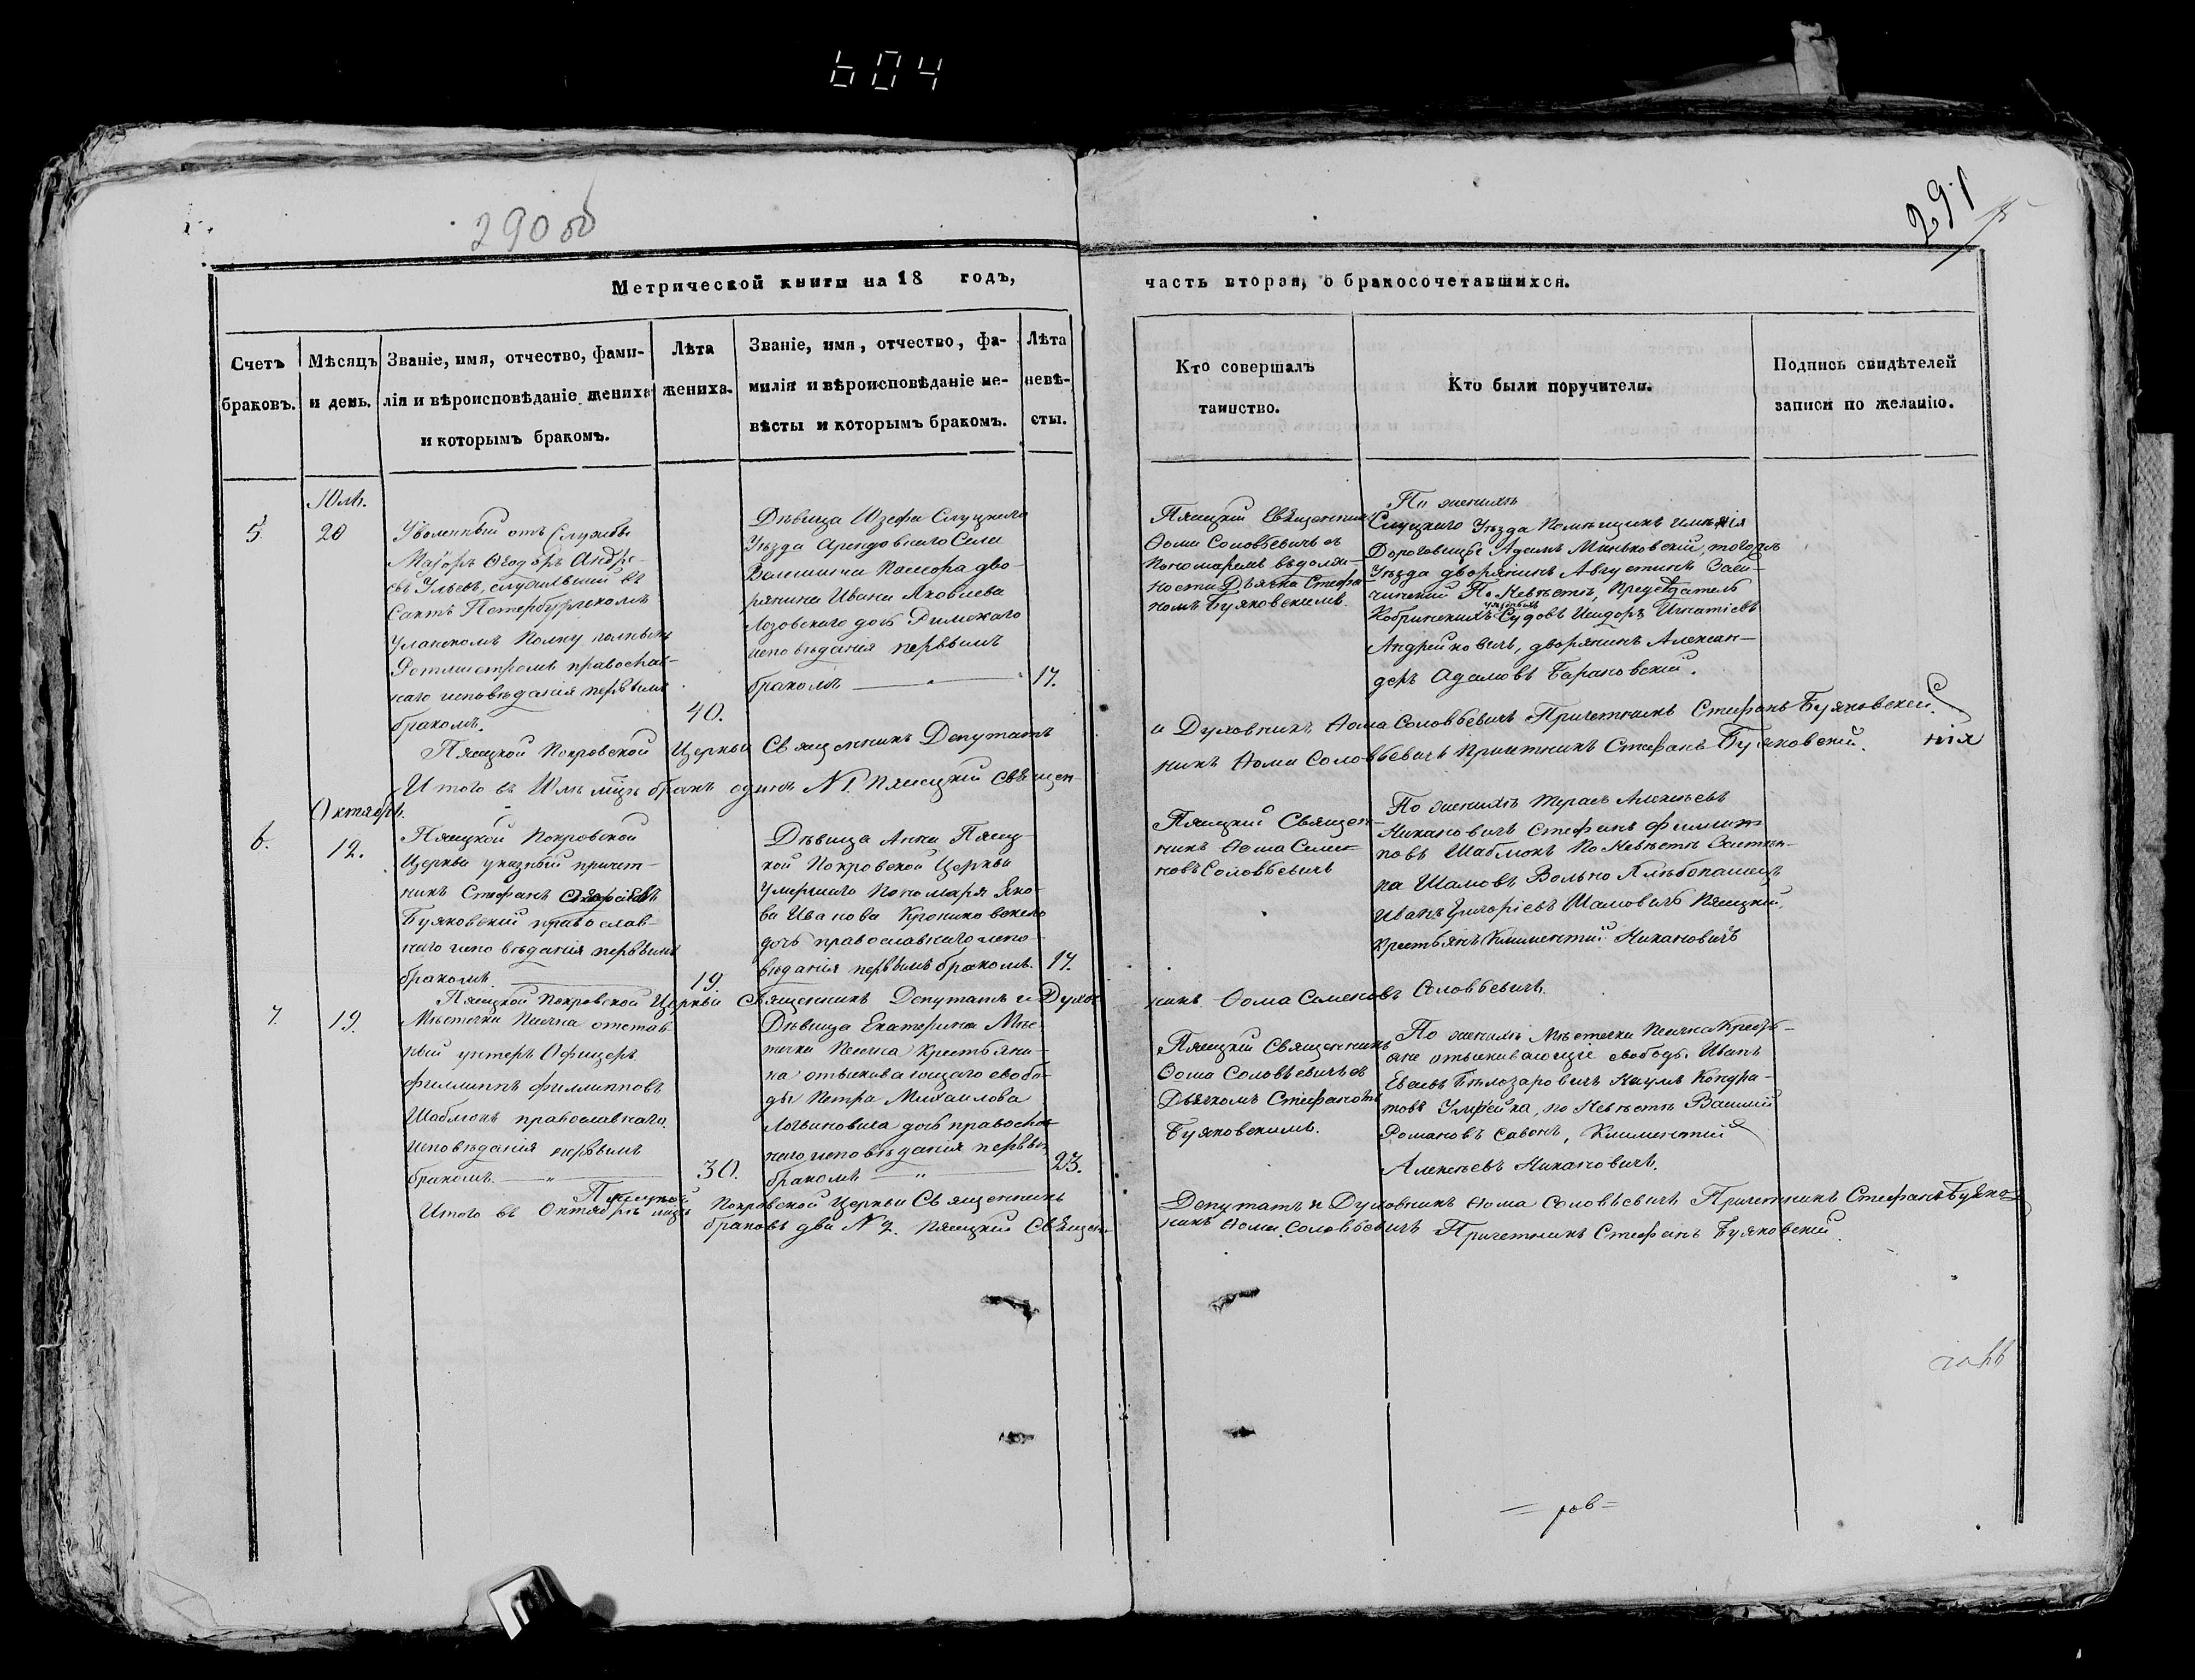 604
290 об
291
Метрической книги на 18 годъ,
часть вторая, о бракосочетавшихся.
Счетъ
браковъ.
Мѣсяцъ
и день.
Званіе, имя, отчество, фами-
лія и вѣроисповѣданіе жениха
и которымъ бракомъ.
Лѣта
жениха.
Званіе, имя, отчество, фа-
милія и вѣроисповѣданіе не-
вѣсты и которымъ бракомъ.
Лѣта
невѣ-
сты.
Кто совершалъ
таинство.
Кто были поручители.
Подпись свидѣтелей
записи по желанію.
Юль.
5.
20
Уволенный отъ Службы
Маіоръ Ѳеодоръ Андре-
евъ Ульевъ, служившій въ
Санктъ Петербургскомъ
Уланскомъ Полку полковы
Ротмистромъ православ-
наго исповѣданія первымъ
бракомъ.
40.
Дѣвица Юзефа Слуцкаго
Уѣзда Арендовнаго Села
дво-
рянина Ивана Яковлева
Лозовскаго дочь Римскаго
исповѣданія первымъ
бракомъ
17.
Пясецкій Священникъ
Ѳома Соловьевичъ съ
Пономаремъ въ должн-
ности Дьячка Стефа-
номъ Буяковскимъ.
По женихѣ
Слуцкаго Уѣзда Помѣщикъ имѣнія
Дороговице Адамъ Миньковскій, тогожъ
Уѣзда дворянинъ Августинъ Заси-
чинскій По Невѣстѣ, Предсѣдатель
Кобринскихъ Судовъ Исидоръ Игнатіевъ
Андрейковичъ, дворянинъ Алексан-
деръ Адамовъ Барановскій.
Пясецкой Покровской Церкви Священникъ Депутатъ
и Духовникъ Ѳома Соловьевичъ Причетникъ Стефанъ Буяковскій.
Итого въ Юлѣ мцѣ бракъ одинъ №1 Пясецкій Священ-
никъ Ѳома Соловьевичъ причетникъ Стефанъ Буяковскій.
нія
Октябрь.
6.
12.
Пясецкой Покровской
Церкви указный причет-
никъ Стефанъ
Буяковскій православ-
наго исповѣданія первымъ
бракомъ.
19.
Дѣвица Анна Пясец-
кой Покровской Церкви
Умершаго Пономаря Яко-
ва Иванова Крониковскаго
дочь православнаго испо-
вѣданія первымъ бракомъ.
17.
Пясецкій Священ-
никъ Ѳома Семе-
новъ Соловьевичъ
По женихѣ Тарасъ Алексѣевъ
Никановичъ Стефанъ Филип-
повъ Шаблюкъ По Невѣстѣ
Вольно Хлѣбопашецъ
Иванъ Григоріевъ Шамовичъ Пясецкій
крестьянъ Климентій Никановичъ
Пясецкой Покровской Церкви Священникъ Депутатъ и Духов-
никъ Ѳома Семеновъ Соловьевичъ.
7.
19.
Мѣстечка Пясечна отстав-
ный унтеръ Офицеръ
Филиппъ Филипповъ
Шаблюкъ православнаго
исповѣданія первымъ
бракомъ.
30.
Дѣвица Екатерина Мѣс-
течка Пясечна Крестьяни-
на отыскивающаго свобо-
ды Петра Михаилова
Логвиновича дочь православ-
наго исповѣданія первымъ
бракомъ
23.
Пясецкій Священникъ
Ѳома Соловьевичъ съ
Дьячкомъ Стефаномъ
Буяковскимъ.
По женихѣ Мѣстечка Пясечна Кресть-
яне отыскивающіе свободы Иванъ
Евсѣевъ Бѣлозаровичъ Наумъ Кондра-
товъ Умрейка, по Невѣстѣ Василій
Романовъ Савонъ, Климентій
Алексѣевъ Никановичъ.
Пясецкой Покровской Церкви Священникъ
Депутатъ и Духовникъ Ѳома Соловьевичъ Причетникъ Стефанъ Буяко-
Итого въ Октябрѣ мцѣ браковъ два №2. Пясецкій Священ-
никъ Ѳома Соловьевичъ Причетникъ Стефанъ Буяковскій.